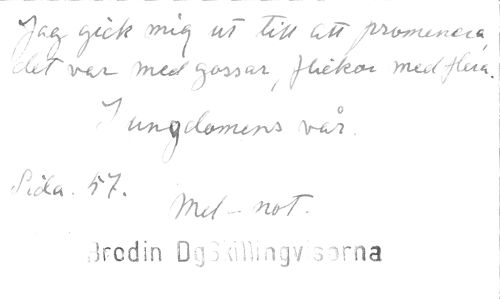 Jag gick mig ut till att promenera
det var med gossar, flickor med flera.
I ungdomens vår.
Sida. 57.
Mel-not.
Brodin DgSkillingvisorna